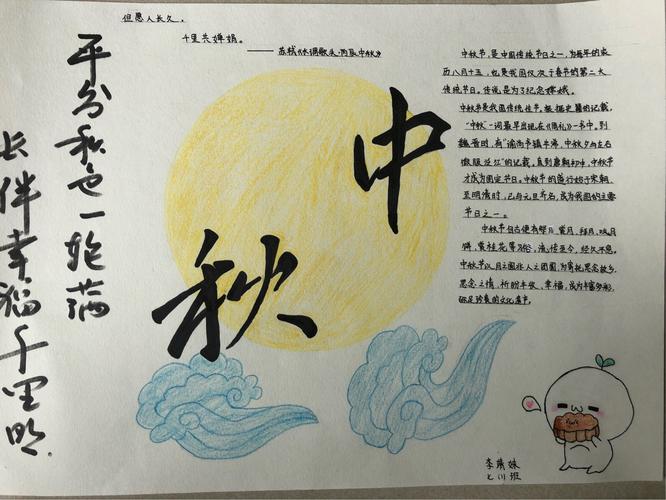 但愿人长久，
千里共婵娟。
——苏轼《水调歌头·丙辰中秋》
平分秋色一轮满
长伴幸福千里明.
中
秋
中秋节，是中国传统节日之一，为每年的农
历八月十五，也是我国仅次于春节的第二大
传统节日。传说是为了纪念嫦娥。
中秋节是我国传统佳节。根据史籍的记载，
“中秋”一词最早出现在《周礼》一书中。到
魏晋时，有“谕尚书镇牛渚，中秋夕与左右
微服泛江”的记载。直到唐朝初年，中秋节
才成为固定节日。中秋节的盛行始于宋朝，
至明清时，已与元旦齐名，成为我国的主要
节日之一。
中秋节自古便有祭月、赏月、拜月、吃月
饼、赏桂花等习俗，流传至今，经久不息。
中秋节以月之圆兆人之团圆，为寄托思念故乡，
思念之情，祈盼丰收、幸福，成为丰富多彩、
弥足珍贵的文化遗产。